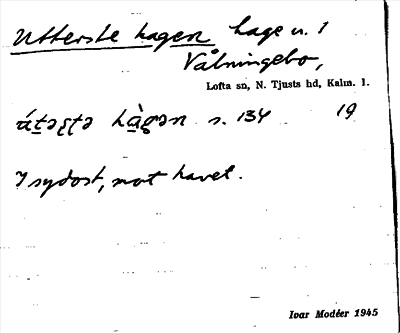 Utterste hagen hage u. 1
Vålningebo,
Lofta sn, N. Tjusts hd, Kalm. l.
hàgən s. 134 19
I sydost, mot havet.
Ivar Modéer 1945